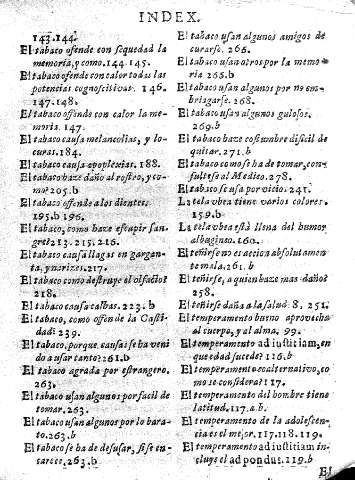 INDEX.
143.144.
El tabaco ofende con sequedad la
memoria, y como. 144. 145.
El tabaco ofende con calor todas las
potencias cognoscitivas. 146.
147.148.
El tabaco ofende con calor la me-
moria. 147.
El tabaco causa melancolias, y lo-
curas. 184.
El tabaco causa apoplexias. 188.
El tabaco haze daño al rostro, y co-
mo? 205.b
El tabaco ofende a los dientes.
195.b 196.
El tabaco, como haze escupir san-
gre? 213. 215. 216.
El tabaco causa llagas en gargan-
ta, y narizes. 217.
El tabaco como destruye el olfacto?
218.
El tabaco causa calbas. 223. b
El tabaco, como ofende la Casti-
dad? 239.
El tabaco, porque causa se ha veni
do a usar tanto? 261.b
El tabaco agrada por estrangero.
263.
El tabaco usan algunos por facil de
tomar. 263.
El tabaco usan algunos por lo bara-
to. 263.b
El tabaco se ha de desusar, si se en-
carece. 263.b
El tabaco usan algunos amigos de
curarse. 265.
El tabaco usan otros por la memo-
ria 265.b
El tabaco usan algunos por no em-
briagarse. 268.
El tabaco usan algunos gulosos.
269.b
El tabaco haze costumbre dificil de
quitar. 271.b
El tabaco como se ha de tomar, con-
sultese al Medico. 278.
El tabaco se usa por vicio. 241.
La tela vbea tiene varios colores.
159.b
La tela vbea està llena del humor
albugineo. 160.
El teñirse no es accion absolutamen
te mala. 261. b
El teñirse, a quien haze mas daño?
258.
El teñirse daña a la salud. 8. 251.
El temperamento bueno aprovecha
al cuerpo, y al alma. 99.
El temperamento ad iustitiam, en
que edad sucede? 116.b
El temperamento coalternativo, co
mo se considera? 117.
El temperamento del hombre tiene
latitud. 117. a. b.
El temperamento de la adolescen-
cia es mejor. 117. 118. 119.
El temperamento ad iustitiam in-
cluye el ad pondus. 119.b
El